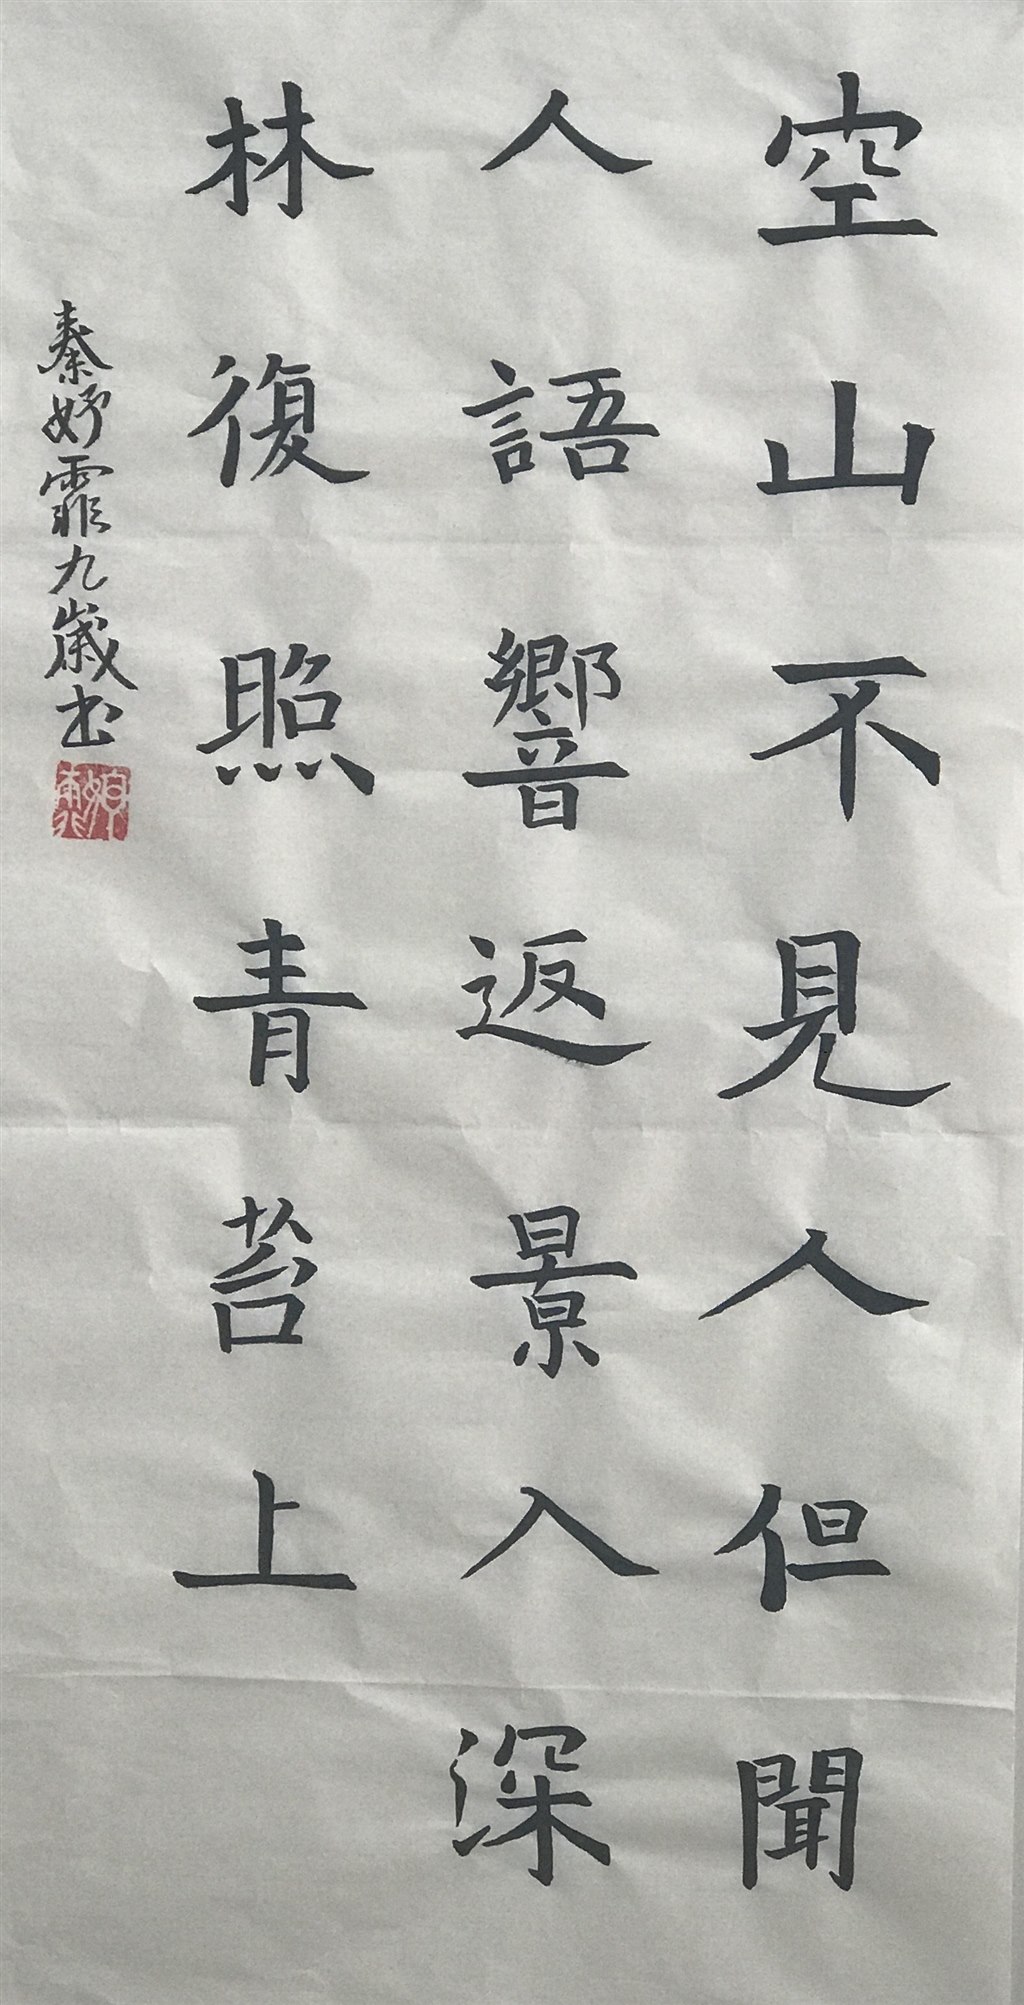 空山不見人但聞
人語響返景入深
林復照青苔上
秦妤霏九歲书